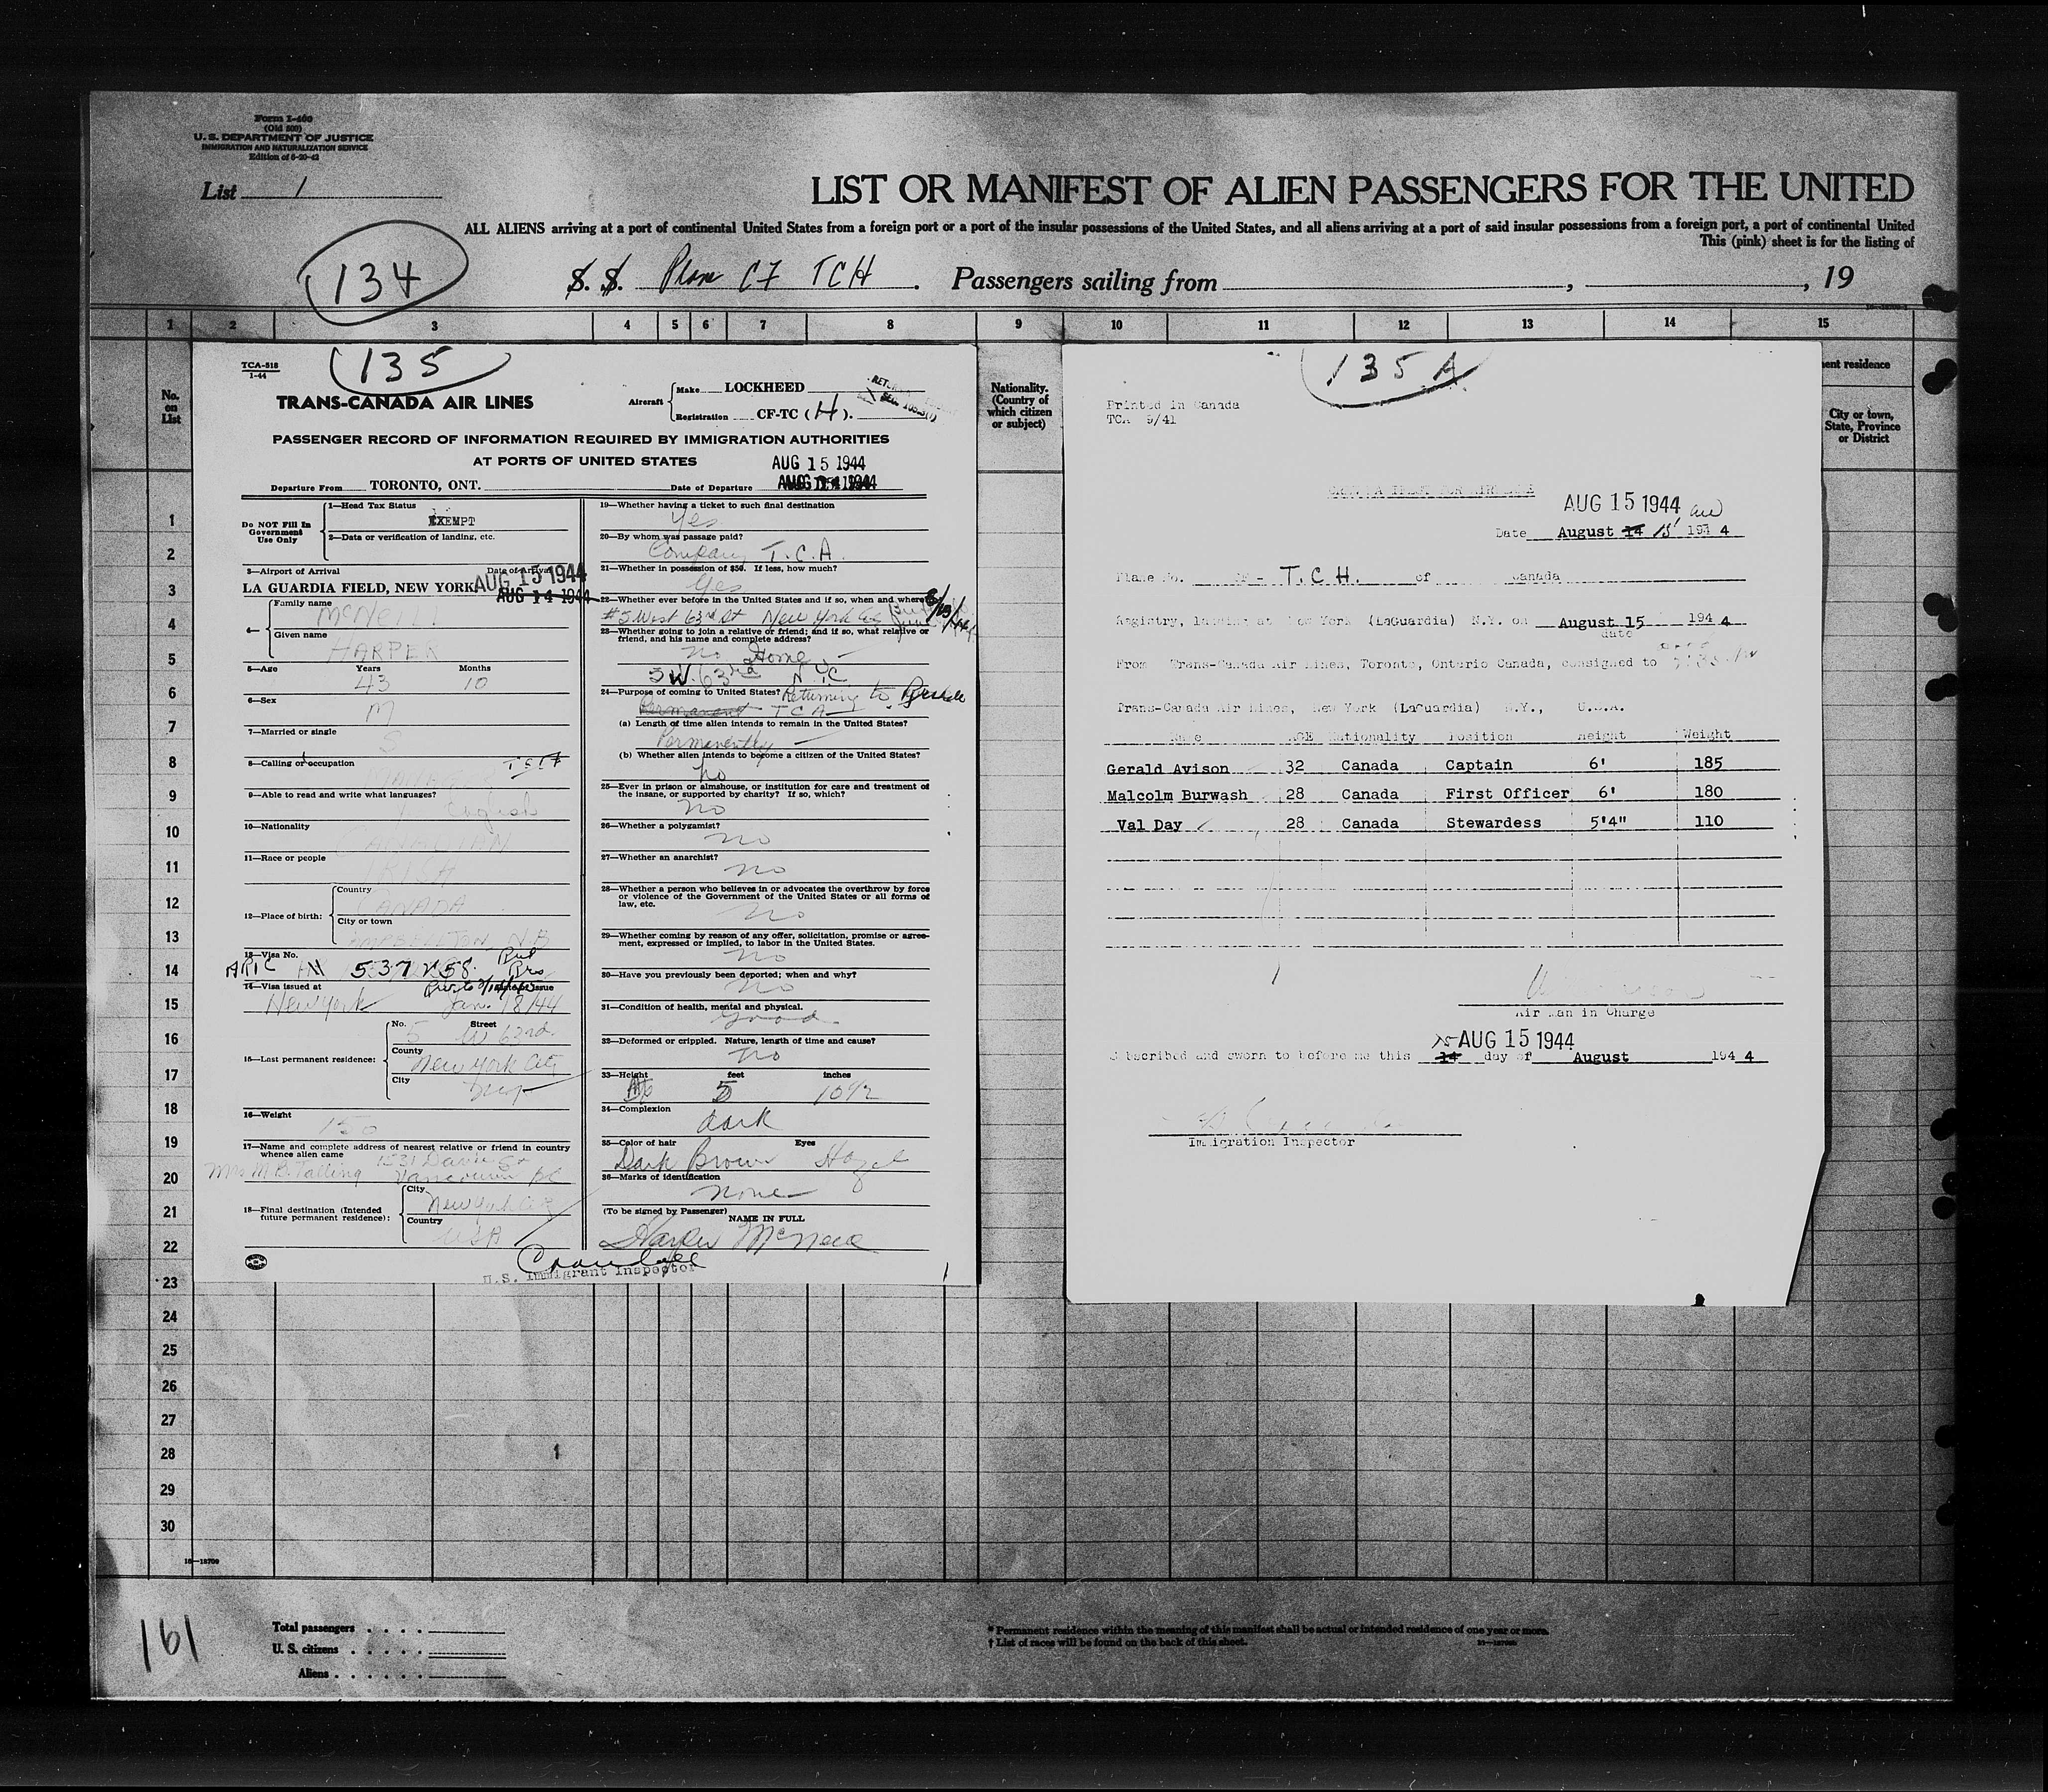 Form I-460
(Old 500)
U. S. DEPARTMENT OF JUSTICE
IMMIGRATION AND NATURALIZATION SERVICE
Edition of 6-20-42
List 1
LIST OR MANIFEST OF ALIEN PASSENGERS FOR THE UNITED
ALL ALIENS arriving at a port of continental United States from a foreign port or a port of the insular possessions of the United States, and all aliens arriving at a port of said insular possessions from a foreign port, a port of continental United
This (pink) sheet is for the listing of
134
S. S. Plane CF TCH . Passengers sailing from , , 19
1 2 3 4 5 6 7 8 9 10 11 12 13 14 15
No. on List
Nationality. (Country of which citizen or subject)
ent residence
City or town, State, Province or District
TCA-518
1-44
135
TRANS-CANADA AIR LINES
Aircraft Make LOCKHEED
Registration CF-TC (H).
PASSENGER RECORD OF INFORMATION REQUIRED BY IMMIGRATION AUTHORITIES
AT PORTS OF UNITED STATES
AUG 15 1944
Departure From TORONTO, ONT. Date of Departure
Do NOT Fill In Government Use Only
1—Head Tax Status
EXEMPT
2—Data or verification of landing, etc.
3—Airport of Arrival Date of Arrival
LA GUARDIA FIELD, NEW YORK AUG 15 1944
AUG 14 1944
4— Family name
McNEILL
Given name
HARPER
5—Age Years Months
43 10
6—Sex
M
7—Married or single
S
8—Calling or occupation
9—Able to read and write what languages?
English
10—Nationality
CANADIAN
11—Race or people
IRISH
12—Place of birth: Country
CANADA
City or town
CAMPBELLTON, N.B.
13—Visa No.
14—Visa issued at Date of issue
New York Jan. 18/44
15—Last permanent residence: No. Street
5 W 63rd
County
New York City
City
16—Weight
150
17—Name and complete address of nearest relative or friend in country whence alien came
Mrs M B. Talling 1531 Davie St
Vancouver BC
18—Final destination (Intended future permanent residence): City
New York City
Country
USA
19—Whether having a ticket to such final destination
Yes
20—By whom was passage paid?
Company T.C.A.
21—Whether in possession of $50. If less, how much?
Yes
22—Whether ever before in the United States and if so, when and where?
#5 West 63rd St New York City
23—Whether going to join a relative or friend; and if so, what relative or friend, and his name and complete address?
no Home
5 W. 63rd N.Y.C
24—Purpose of coming to United States? Returning to Reside
Permanent TCA
(a) Length of time alien intends to remain in the United States?
Permanently
(b) Whether alien intends to become a citizen of the United States?
no
25—Ever in prison or almshouse, or institution for care and treatment of the insane, or supported by charity? If so, which?
no
26—Whether a polygamist?
no
27—Whether an anarchist?
no
28—Whether a person who believes in or advocates the overthrow by force or violence of the Government of the United States or all forms of law, etc.
no
29—Whether coming by reason of any offer, solicitation, promise or agreement, expressed or implied, to labor in the United States.
no
30—Have you previously been deported; when and why?
no
31—Condition of health, mental and physical.
good
32—Deformed or crippled. Nature, length of time and cause?
no
33—Height feet inches
5 10 1/2
34—Complexion
dark
35—Color of hair Eyes
Dark Brown Hazel
36—Marks of identification
none
(To be signed by Passenger)
NAME IN FULL
Harper McNeill
U.S. Immigrant Inspector
135A
Printed in Canada
TCA 9/41
AUG 15 1944
Date August 14 15 1944
Plane No. CF- T.C.H. of Canada
Registry, landing at New York (LaGuardia) N.Y. on August 15 1944
date
From Trans-Canada Air Lines, Toronto, Ontario Canada, consigned to
Trans-Canada Air Lines, New York (LaGuardia) N.Y., U.S.A.
Name AGE Nationality Position Height Weight
Gerald Avison 32 Canada Captain 6' 185
Malcolm Burwash 28 Canada First Officer 6' 180
Val Day 28 Canada Stewardess 5'4" 110
Air Man in Charge
15 AUG 15 1944
Subscribed and sworn to before me this 14 day of August 1944
Immigration Inspector
1
2
3
4
5
6
7
8
9
10
11
12
13
14
15
16
17
18
19
20
21
22
23
24
25
26
27
28
29
30
16—18709
161
Total passengers
U. S. citizens
Aliens
* Permanent residence within the meaning of this manifest shall be actual or intended residence of one year or more.
† List of races will be found on the back of this sheet.